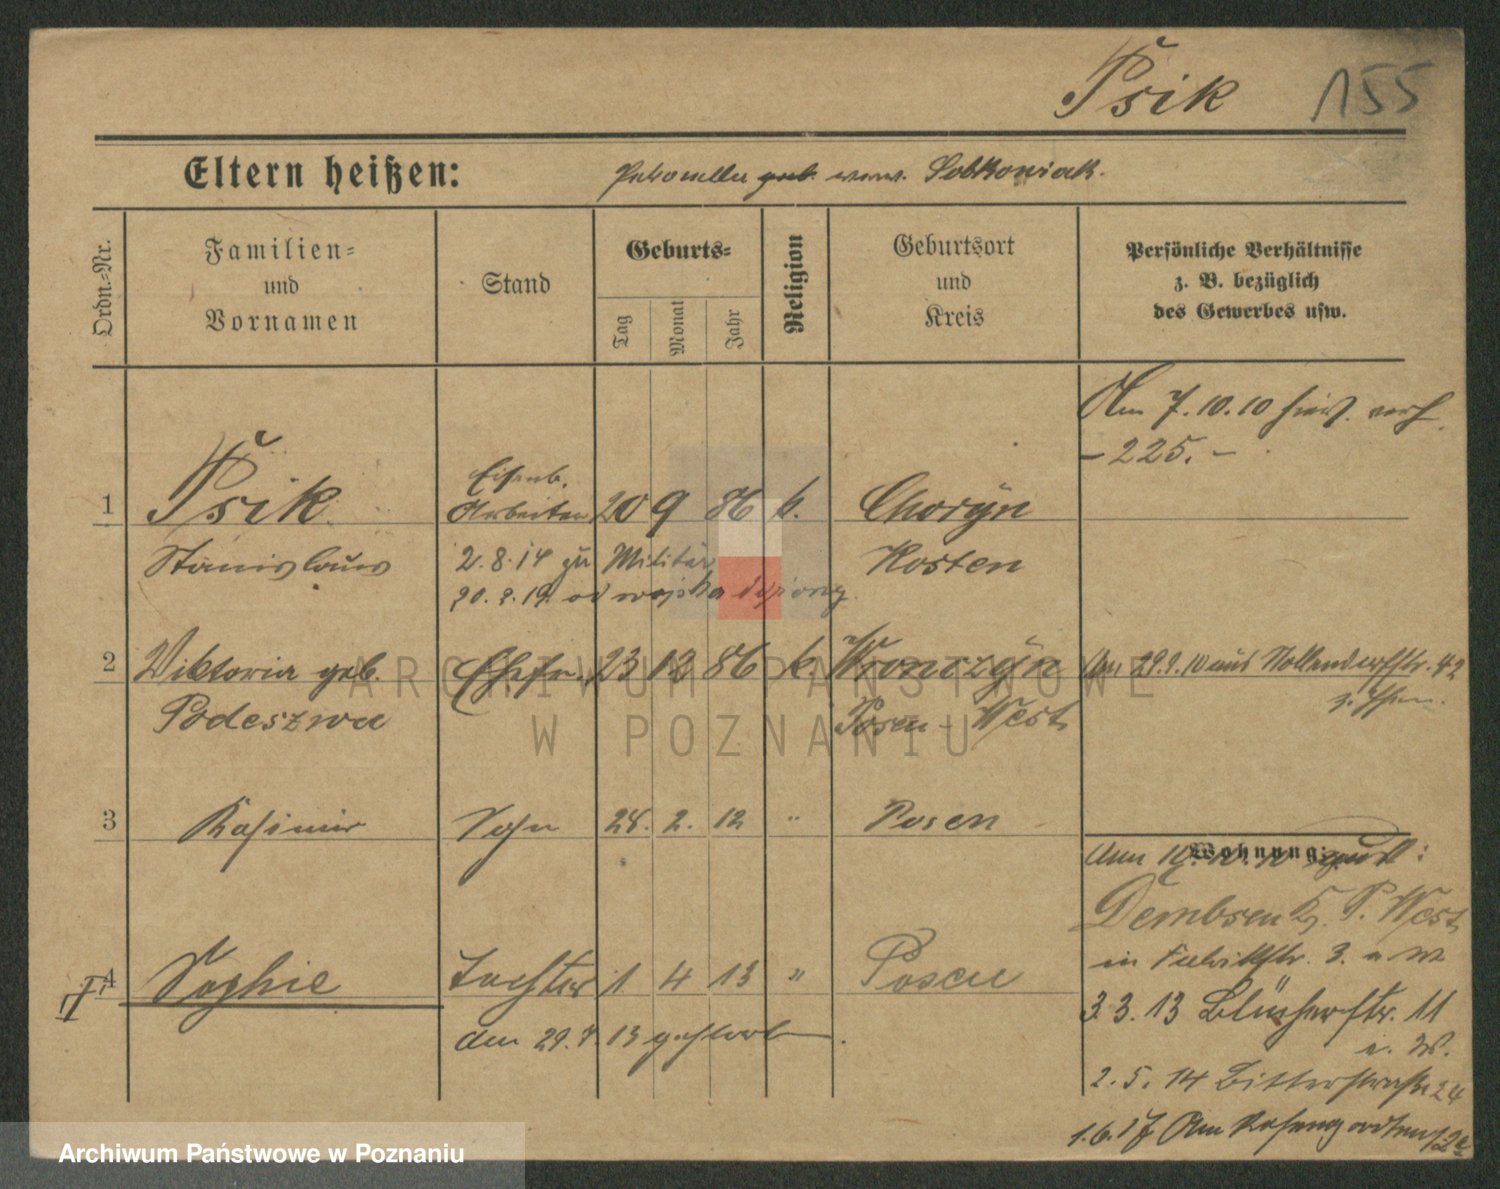 Psik 155
Eltern heißen: Petronella geb. verw. Sobkowiak.
Ordn.-Nr.
Familien-
und
Vornamen
Stand
Geburts-
Tag
Monat
Jahr
Religion
Geburtsort
und
Kreis
Persönliche Verhältnisse
z. B. bezüglich
des Gewerbes usw.
Am 7.10.10 hier verh.
- 225. -
1 Psik Eisenb.
Arbeiter 20 9 86 k. Choryn
Stanislaus 2.8.14 zu Militär Kosten
20.2.19. od wojska
2 Viktoria geb. Ehefr. 23 12 86 k. Wronczyn Am 29.9.10 aus 42
Podeszwa Posen - West z. Ehem.
3 Kasimir Sohn 28. 2. 12 " Posen
Wohnung:
Dembsen K. P. West
4 Sophie Tochter 1 4 13 " Posen
in Fabrikstr. 3. a W
den 29.7 13 gestorben.
3.3.13 Blücherstr. 11
a. W.
2.5.14 Bitterstraße 24
1.6.17 Am Rosengarten 12a
ARCHIWUM PAŃSTWOWE
W POZNANIU
Archiwum Państwowe w Poznaniu